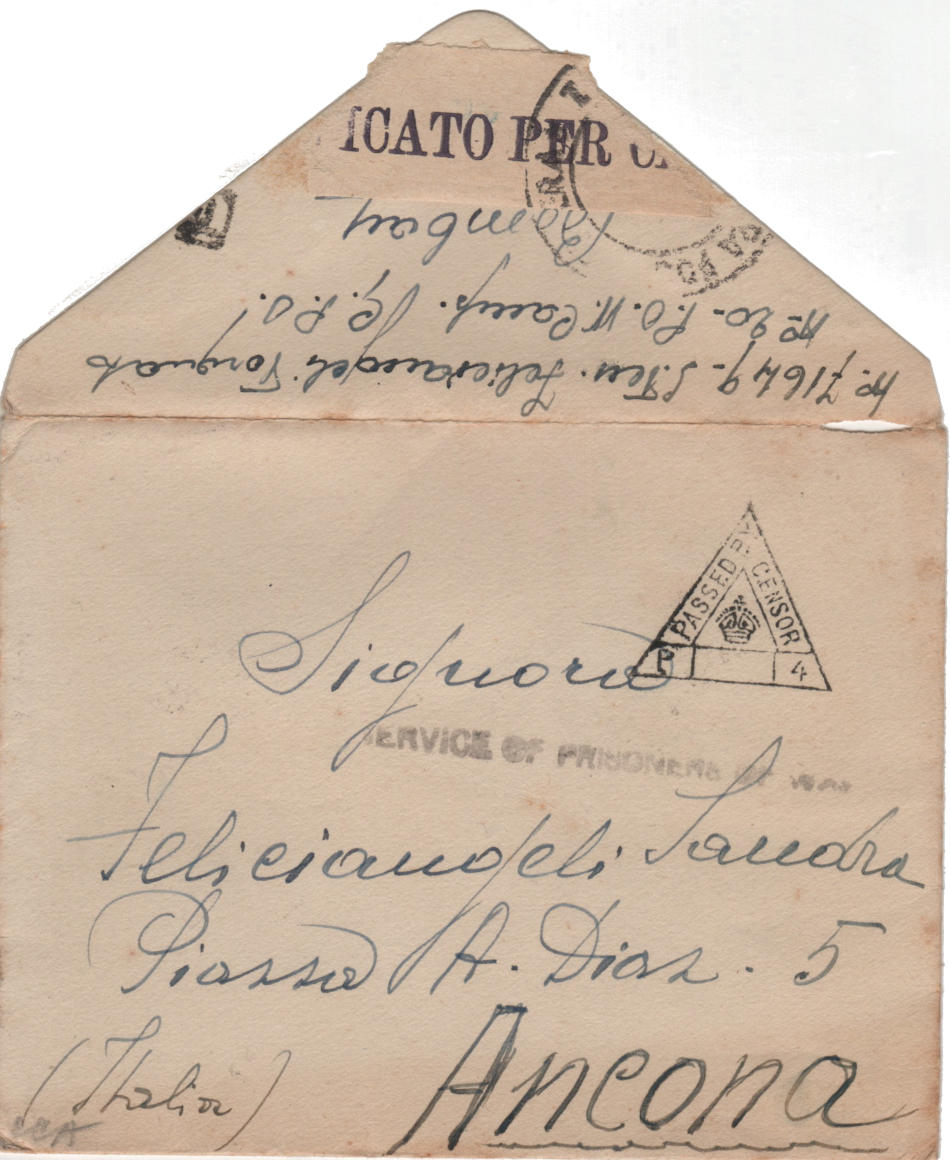 ICATO PER
No. 71649 - S.Ten. Feliciangeli Torquato
No. 20 - P.O.W. Camp. (G.P.O.)
Bombay
PASSED BY CENSOR
P 4
Signora
SERVICE OF PRISONERS OF WAR
Feliciangeli Sandra
Piazza A. Diaz. 5
Ancona
(Italia)